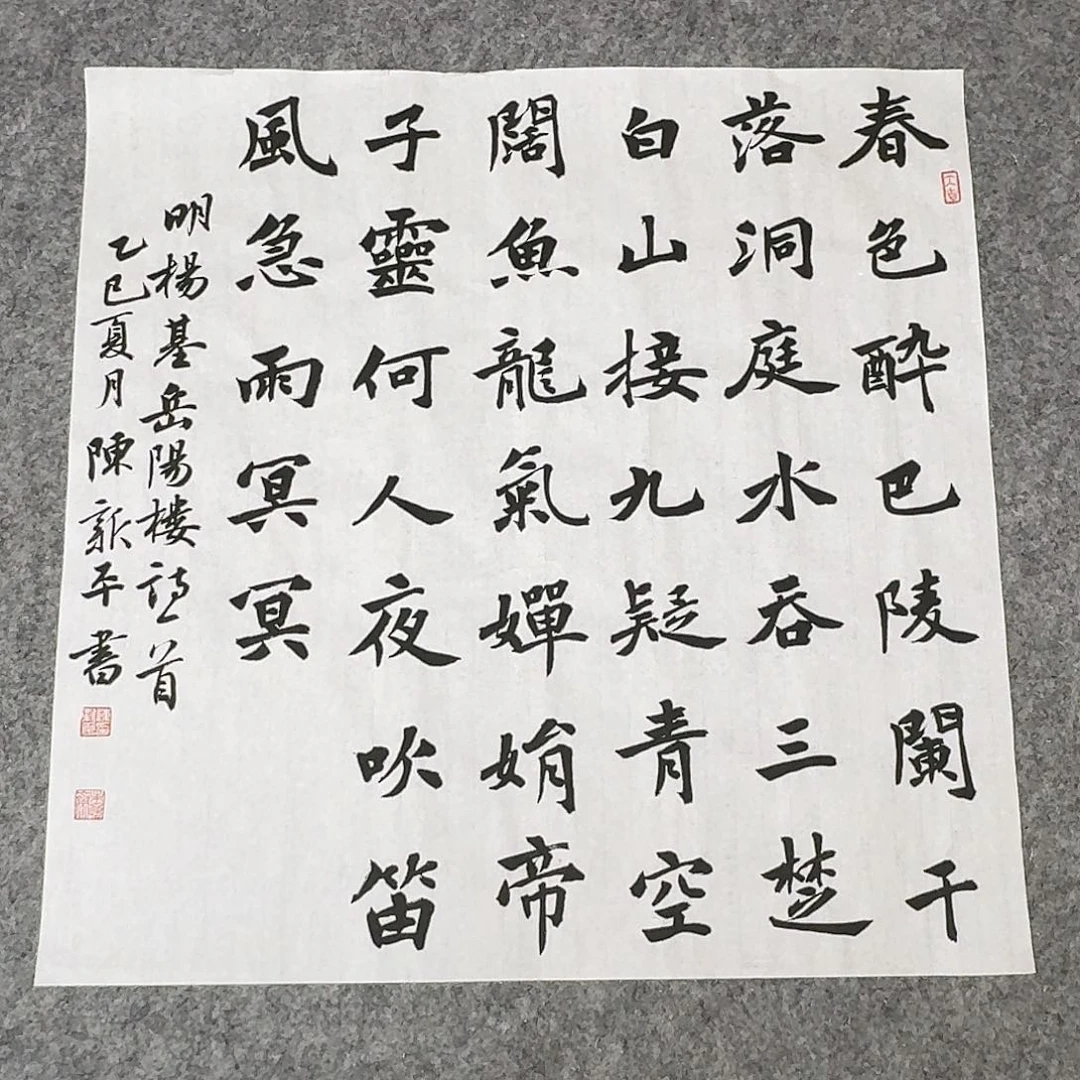 春色醉巴陵闌干
落洞庭水吞三楚
白山接九疑青空
闊魚龍氣嬋娟帝
子靈何人夜吹笛
風急雨冥冥
明楊基岳陽樓詩一首
乙巳夏月陳新平書